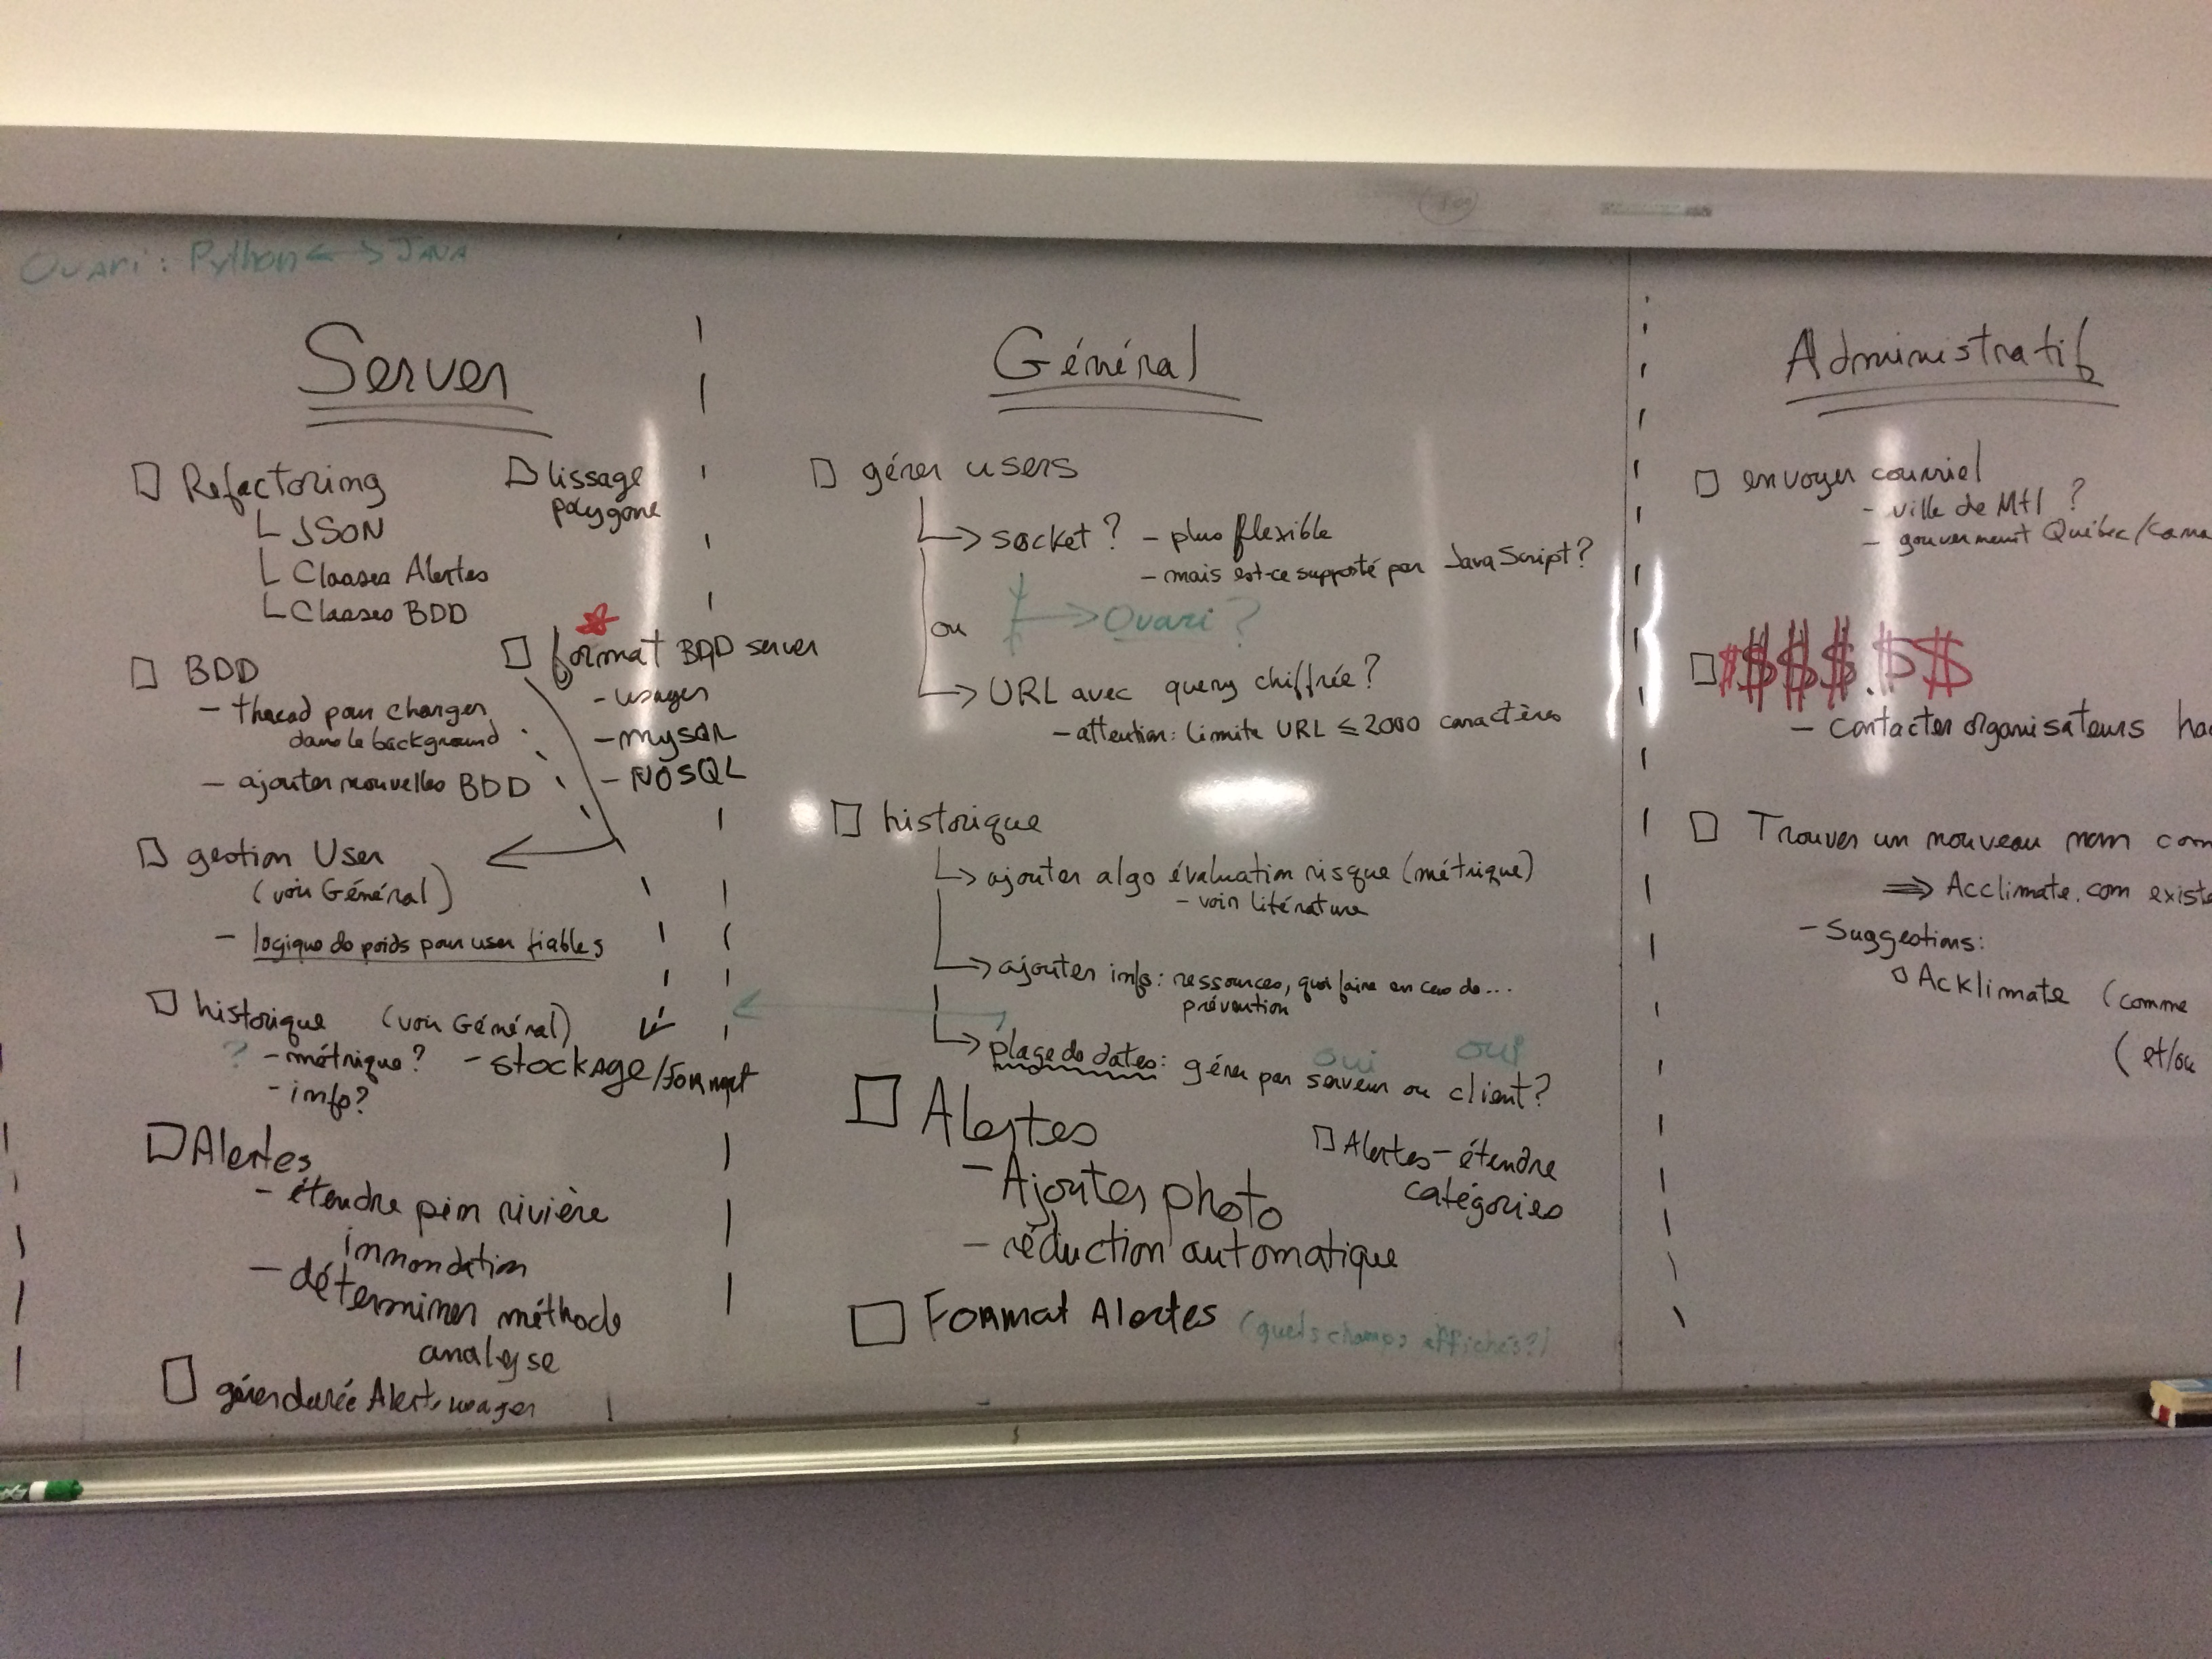 Ouari : Python <-> JAVA
Server
□ Refactoring
└ JSON
└ Classes Alertes
└ Classes BDD
□ lissage
polygone
□ BDD
- thread pour changer
dans le background
- ajouter nouvelles BDD
□ format BDD server
- usager
- mySQL
- NOSQL
□ gestion User
(voir Général)
- logique de poids pour user fiables
□ historique (voir Général)
? - métrique? - stockage/format
- info?
□ Alertes
- étendre pin rivière
innondation
- déterminer méthode
analyse
□ gérer durée Alert. usager
Général
□ gérer users
└-> socket ? - plus flexible
- mais est-ce supporté par JavaScript ?
-> Ouari ?
ou
└-> URL avec query chiffrée ?
- attention : limite URL ≤ 2000 caractères
□ historique
└-> ajouter algo évaluation risque (métrique)
- voir litérature
└-> ajouter info : ressources, quoi faire en cas de...
prévention
oui oui
└-> plage de dates : gérer par serveur ou client ?
□ Alertes
- Ajouter photo
- réduction automatique
□ Alertes - étendre
catégories
□ Format Alertes (quels champs affichés?)
Administratif
□ envoyer courriel
- ville de Mtl ?
- gouvernement Québec/Cana
□ $$$$.$$
- contacter organisateurs ha
□ Trouver un nouveau nom com
=> Acclimate.com existe
- Suggestions:
□ Acklimate (comme
(et/ou